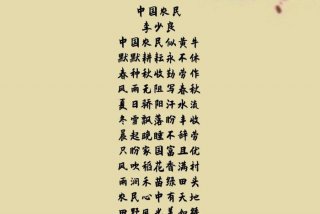 中国农民
李少良
中国农民似黄牛
默默耕耘永不休
春种秋收勤劳作
风雨无阻写春秋
夏日骄阳汗水流
冬雪飘落盼丰收
晨起晚睡不辞劳
只盼家国富且优
风吹稻花香满村
雨润禾苗绿田头
农民心中有天地
田野风光美如